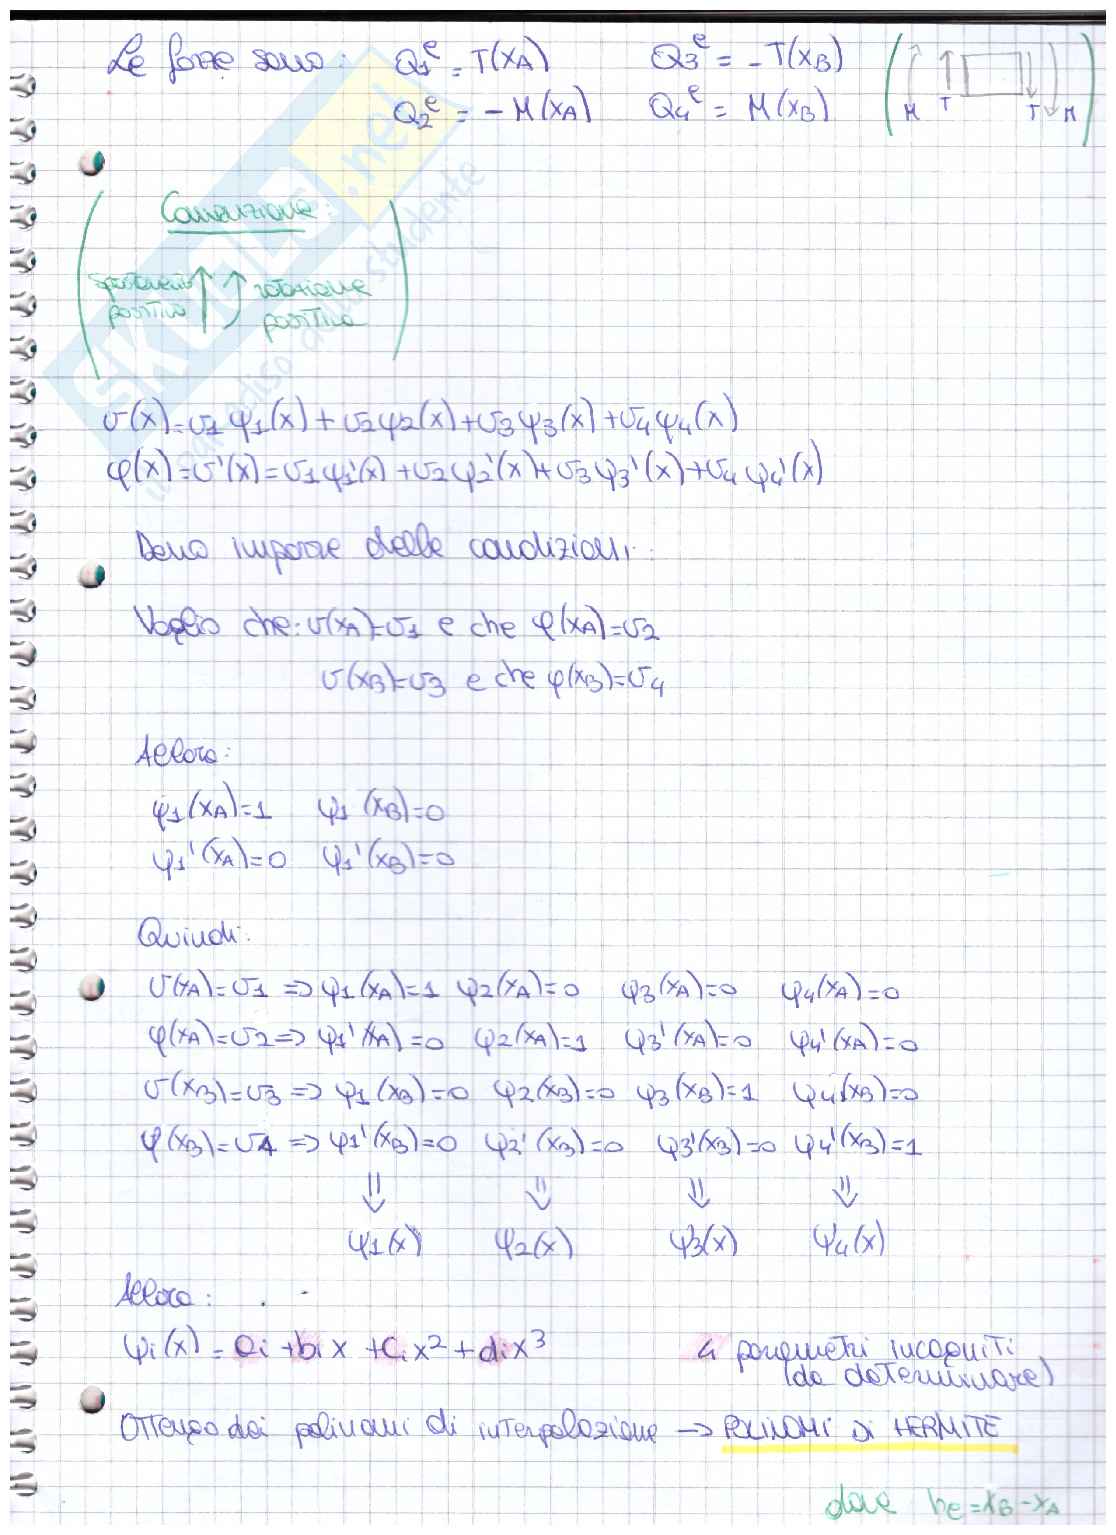 Le forze sono: Q1^e = T(xA) Q3^e = -T(xB)
Q2^e = -M(xA) Q4^e = M(xB)
M T T M
Convenzione:
spostamento positivo rotazione positiva
v(x)=v1 ψ1(x) + v2 ψ2(x) + v3 ψ3(x) + v4 ψ4(x)
φ(x)=v'(x)=v1 ψ1'(x) + v2 ψ2'(x) + v3 ψ3'(x) + v4 ψ4'(x)
Devo imporre delle condizioni:
Voglio che: v(xA)=v1 e che φ(xA)=v2
v(xB)=v3 e che φ(xB)=v4
Allora:
ψ1(xA)=1 ψ1(xB)=0
ψ1'(xA)=0 ψ1'(xB)=0
Quindi:
v(xA)=v1 => ψ1(xA)=1 ψ2(xA)=0 ψ3(xA)=0 ψ4(xA)=0
φ(xA)=v2 => ψ1'(xA)=0 ψ2(xA)=1 ψ3'(xA)=0 ψ4'(xA)=0
v(xB)=v3 => ψ1(xB)=0 ψ2(xB)=0 ψ3(xB)=1 ψ4(xB)=0
φ(xB)=v4 => ψ1'(xB)=0 ψ2'(xB)=0 ψ3'(xB)=0 ψ4'(xB)=1
⇓ ⇓ ⇓ ⇓
ψ1(x) ψ2(x) ψ3(x) ψ4(x)
Allora:
ψi(x) = ai + bi x + ci x² + di x³ 4 parametri incogniti
(da determinare)
Ottengo dei polinomi di interpolazione -> POLINOMI DI HERMITE
dove he = xB - xA
SKUOLA.net
il paradiso dello studente